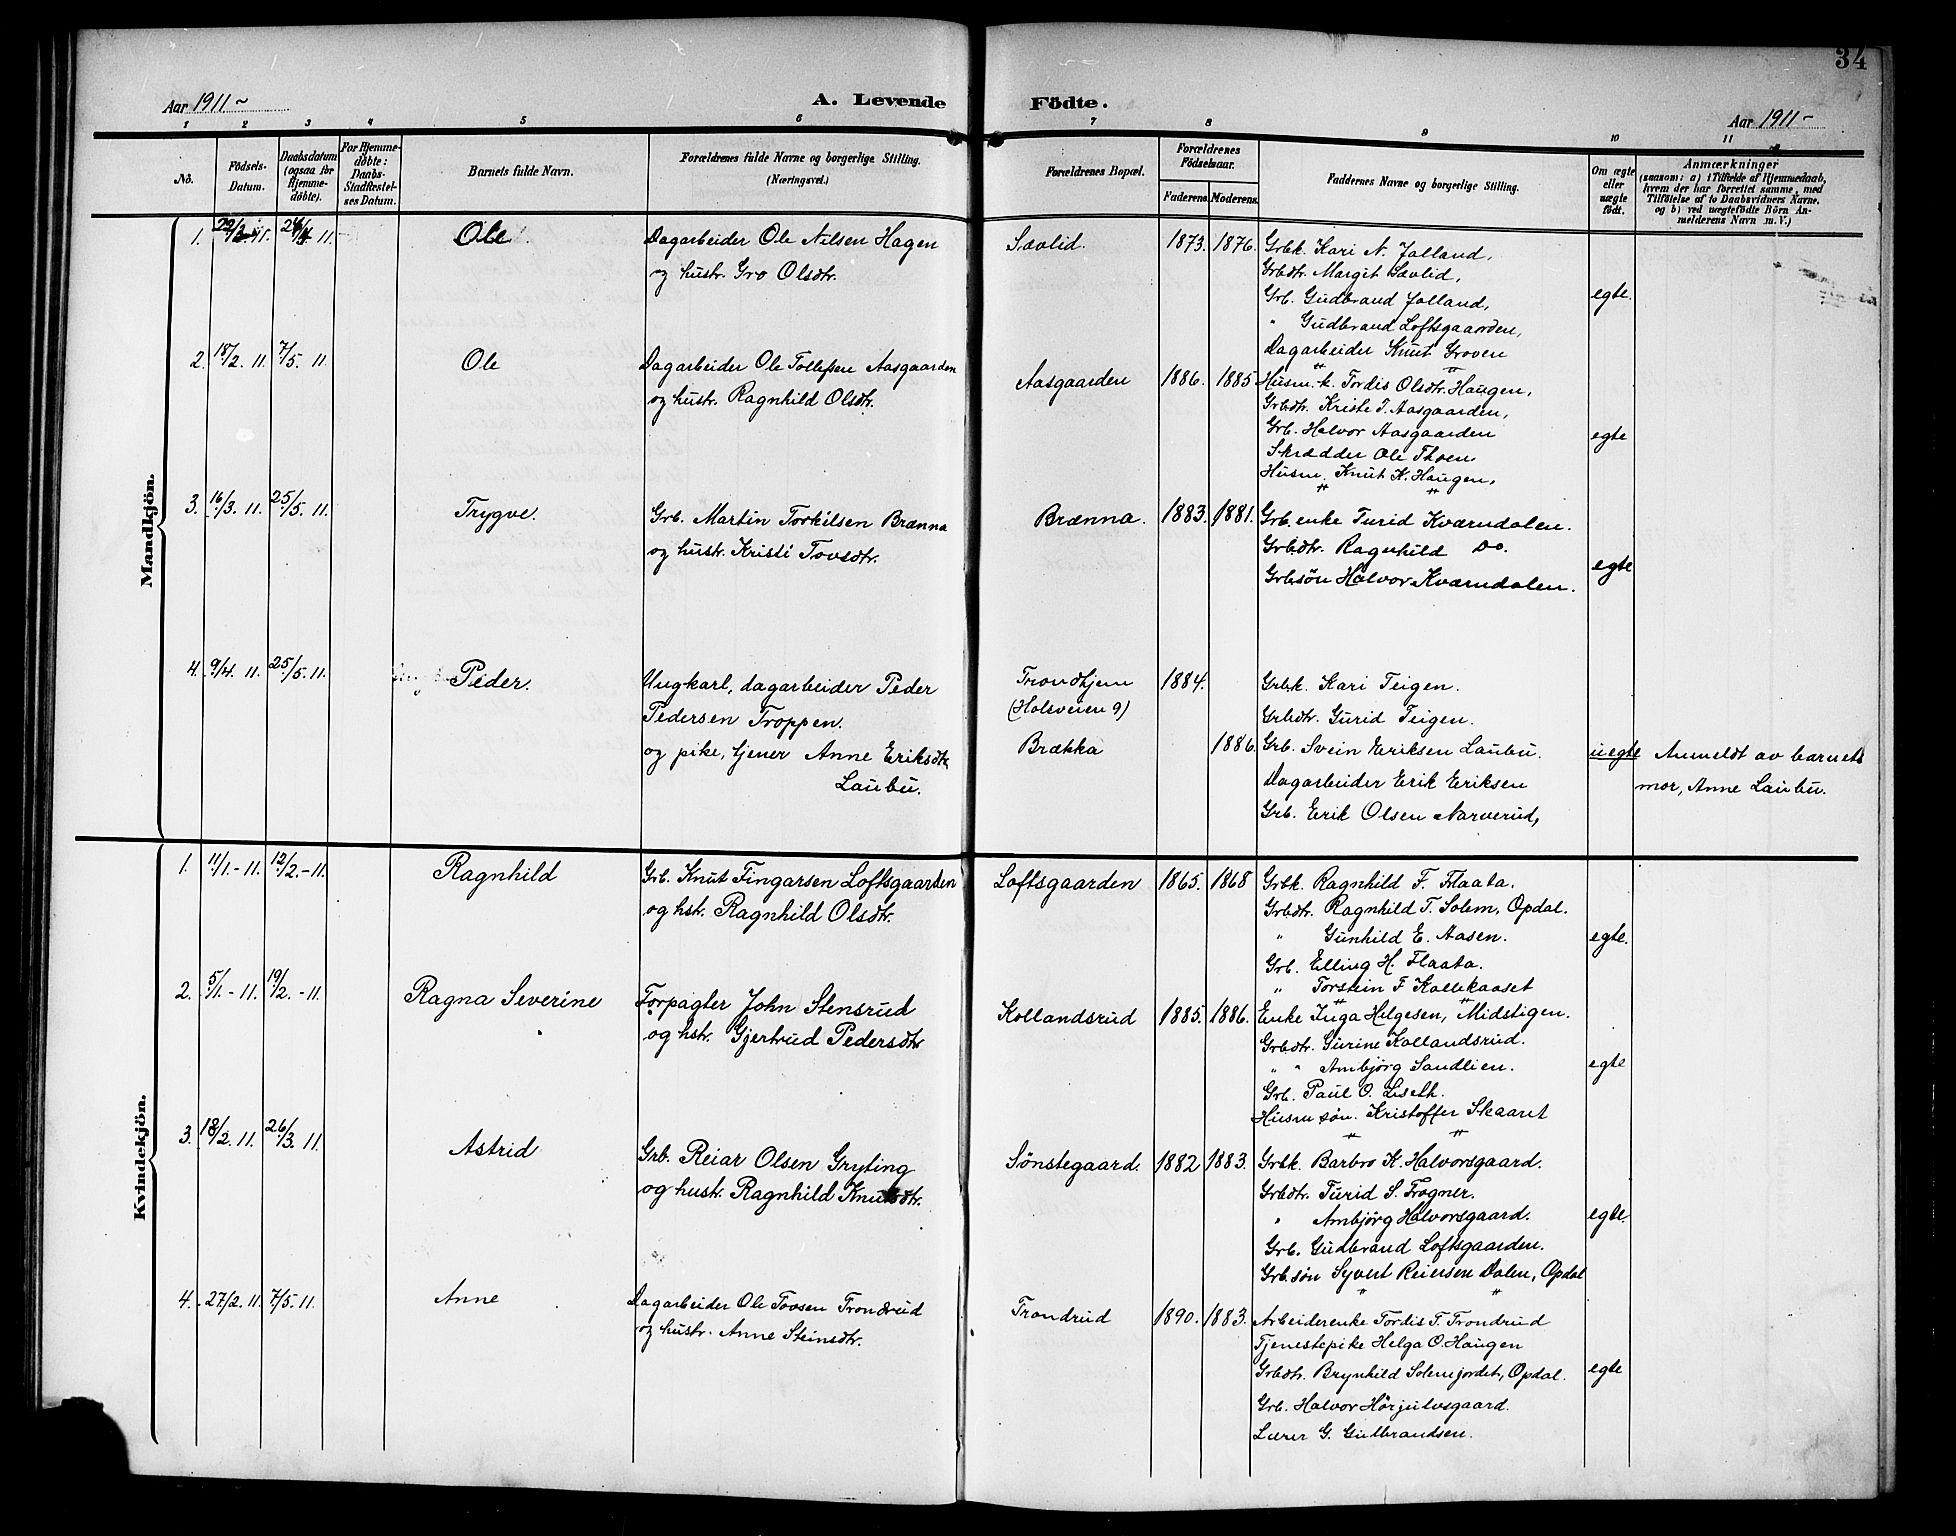 34
Aar 1911 -
A. Levende Födte.
Aar 1911 -
1 2 3 4 5 6 7 8 9 10 11
No.
Födsels-Datum.
Daabsdatum (ogsaa for Hjemme-döbte).
For Hjemme-döbte: Daabs-Stadfæstel-ses Datum.
Barnets fulde Navn.
Forældrenes fulde Navne og borgerlige Stilling. (Næringsvei.)
Forældrenes Bopæl.
Forældrenes Födselsaar.
Faderens. Moderens.
Faddernes Navne og borgerlige Stilling.
Om ægte eller uægte födt.
Anmærkninger
(saasom: a) i Tilfælde af Hjemmedaab, hvem der har forrettet samme, med Tilföielse af to Daabsvidners Navne, og b) ved uægtefödte Börn An-melderens Navn m. V.)
Mandkjön.
1. 11. 11. Ole Dagarbeider Ole Nilsen Hagen Sævlid. 1873. 1876. Grbk. Kari N. Jolland,
og hustr. Gro Olsdtr. Grbdtr. Margit Sævlid,
Grb. Gudbrand Jolland, egte.
" Gudbrand Loftsgaarden,
Dagarbeider Knut Groven
2. 18/2. 11. 7/5. 11. Ole Dagarbeider Ole Tollefsen Aasgaarden Aasgaarden 1886. 1885 Husm. k. Tordis Olsdtr. Haugen,
og hustr. Ragnhild Olsdtr. Grbdtr. Kristi T. Aasgaarden,
Grb. Halvor Aasgaarden egte
Skrædder Ole Thoen
Husm. Knut K. Haugen,
3. 16/3. 11. 25/5. 11. Trygve. Grb. Martin Torkilsen Brænna Brænna. 1883. 1881. Grb. enke Turid Kværndalen.
og hustr. Kristi Tovsdtr. Grbdtr. Ragnhild Do.
Grbsøn Halvor Kværndalen. egte
4. 9/4. 11. 25/5. 11. Peder. Ungkarl, dagarbeider Peder Trondhjem 1884. Grbk. Kari Teigen.
Pedersen Troppen. (Holsveien 9) Grbdtr. Gurid Teigen.
og pike, tjener Anne Eriksdtr. Brækka 1886. Grb. Svein Eriksen Laubu. uegte Anmeldt av barnets
Laubu. Dagarbeider Erik Eriksen mor, Anne Laubu.
Grb. Erik Olsen Narverud,
Kvindekjön.
1. 11/1. - 11. 12/2. - 11. Ragnhild Grb. Knut Fingarsen Loftsgaarden Loftsgaarden 1865. 1868 Grbk. Ragnhild F. Flaata.
og hstr. Ragnhild Olsdtr. Grbdtr. Ragnhild T. Solem, Opdal.
" Gunhild E. Aasen. egte.
Grb. Elling H. Flaata.
" Torstein F. Kollekaaset
2. 5/1. - 11. 19/2. - 11. Ragna Severine Forpagter John Stensrud Kollandsrud 1885. 1886. Enke Inga Helgesen, Midstigen.
og hstr. Gjertrud Pedersdtr Grbdtr. Gurine Kollandsrud.
" " Ambjörg Sandlien. egte
Grb. Paul O. Liseth.
Husm søn. Kristoffer Skaaret
3. 18/2. 11. 26/3. 11 Astrid Grb. Reiar Olsen Gryting Sønstegaard. 1882 1883. Grbk. Barbro K. Halvorsgaard.
og hustr. Ragnhild Knutsdtr. Grbdtr. Turid S. Frogner.
" Ambjörg Halvorsgaard. egte.
Grb. Gudbrand Loftsgaarden.
Grb. søn Syvert Reiersen Dalen, Opdal
4. 27/2. 11. 7/5. 11. Anne Dagarbeider Ole Tovsen Trondrud Trondrud 1890. 1883. Arbeiderenke Tordis T. Trondrud
og hustr. Anne Steinsdtr. Tjenestepike Helga O. Haugen
Grbdtr. Brynhild Solemjordet, Opdal. egte
Grb. Halvor Hörjulvsgaard.
Lærer G. Gudbrandsen.